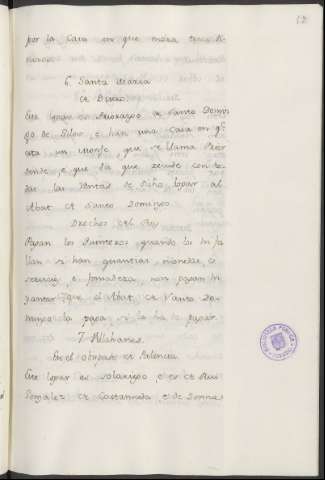 52
por la Casa en que mora tres
6. Santa Maria
de Duero
Este logar es Abadengo de Santo Domin
go de Silos, e han una casa en q.e
está un Monje, que se llama Prior
dende, e que da que recude con to
das las rentas de dicho logar al
Abat de Santo Domingo
Drechos del Rey
Pagan los Quinteros quando los in
llan si han quantias moneda, e
servicio, e fonsadera, non pagan in
yantar que el Abat de Santo Do
mingo la paga
7. Villabanes
En el obispado de Palencia
Este logar es solariego e es de Rui
Gonzalez de Castanneda, e de Donna
BIBLIOTECA PUBLICA